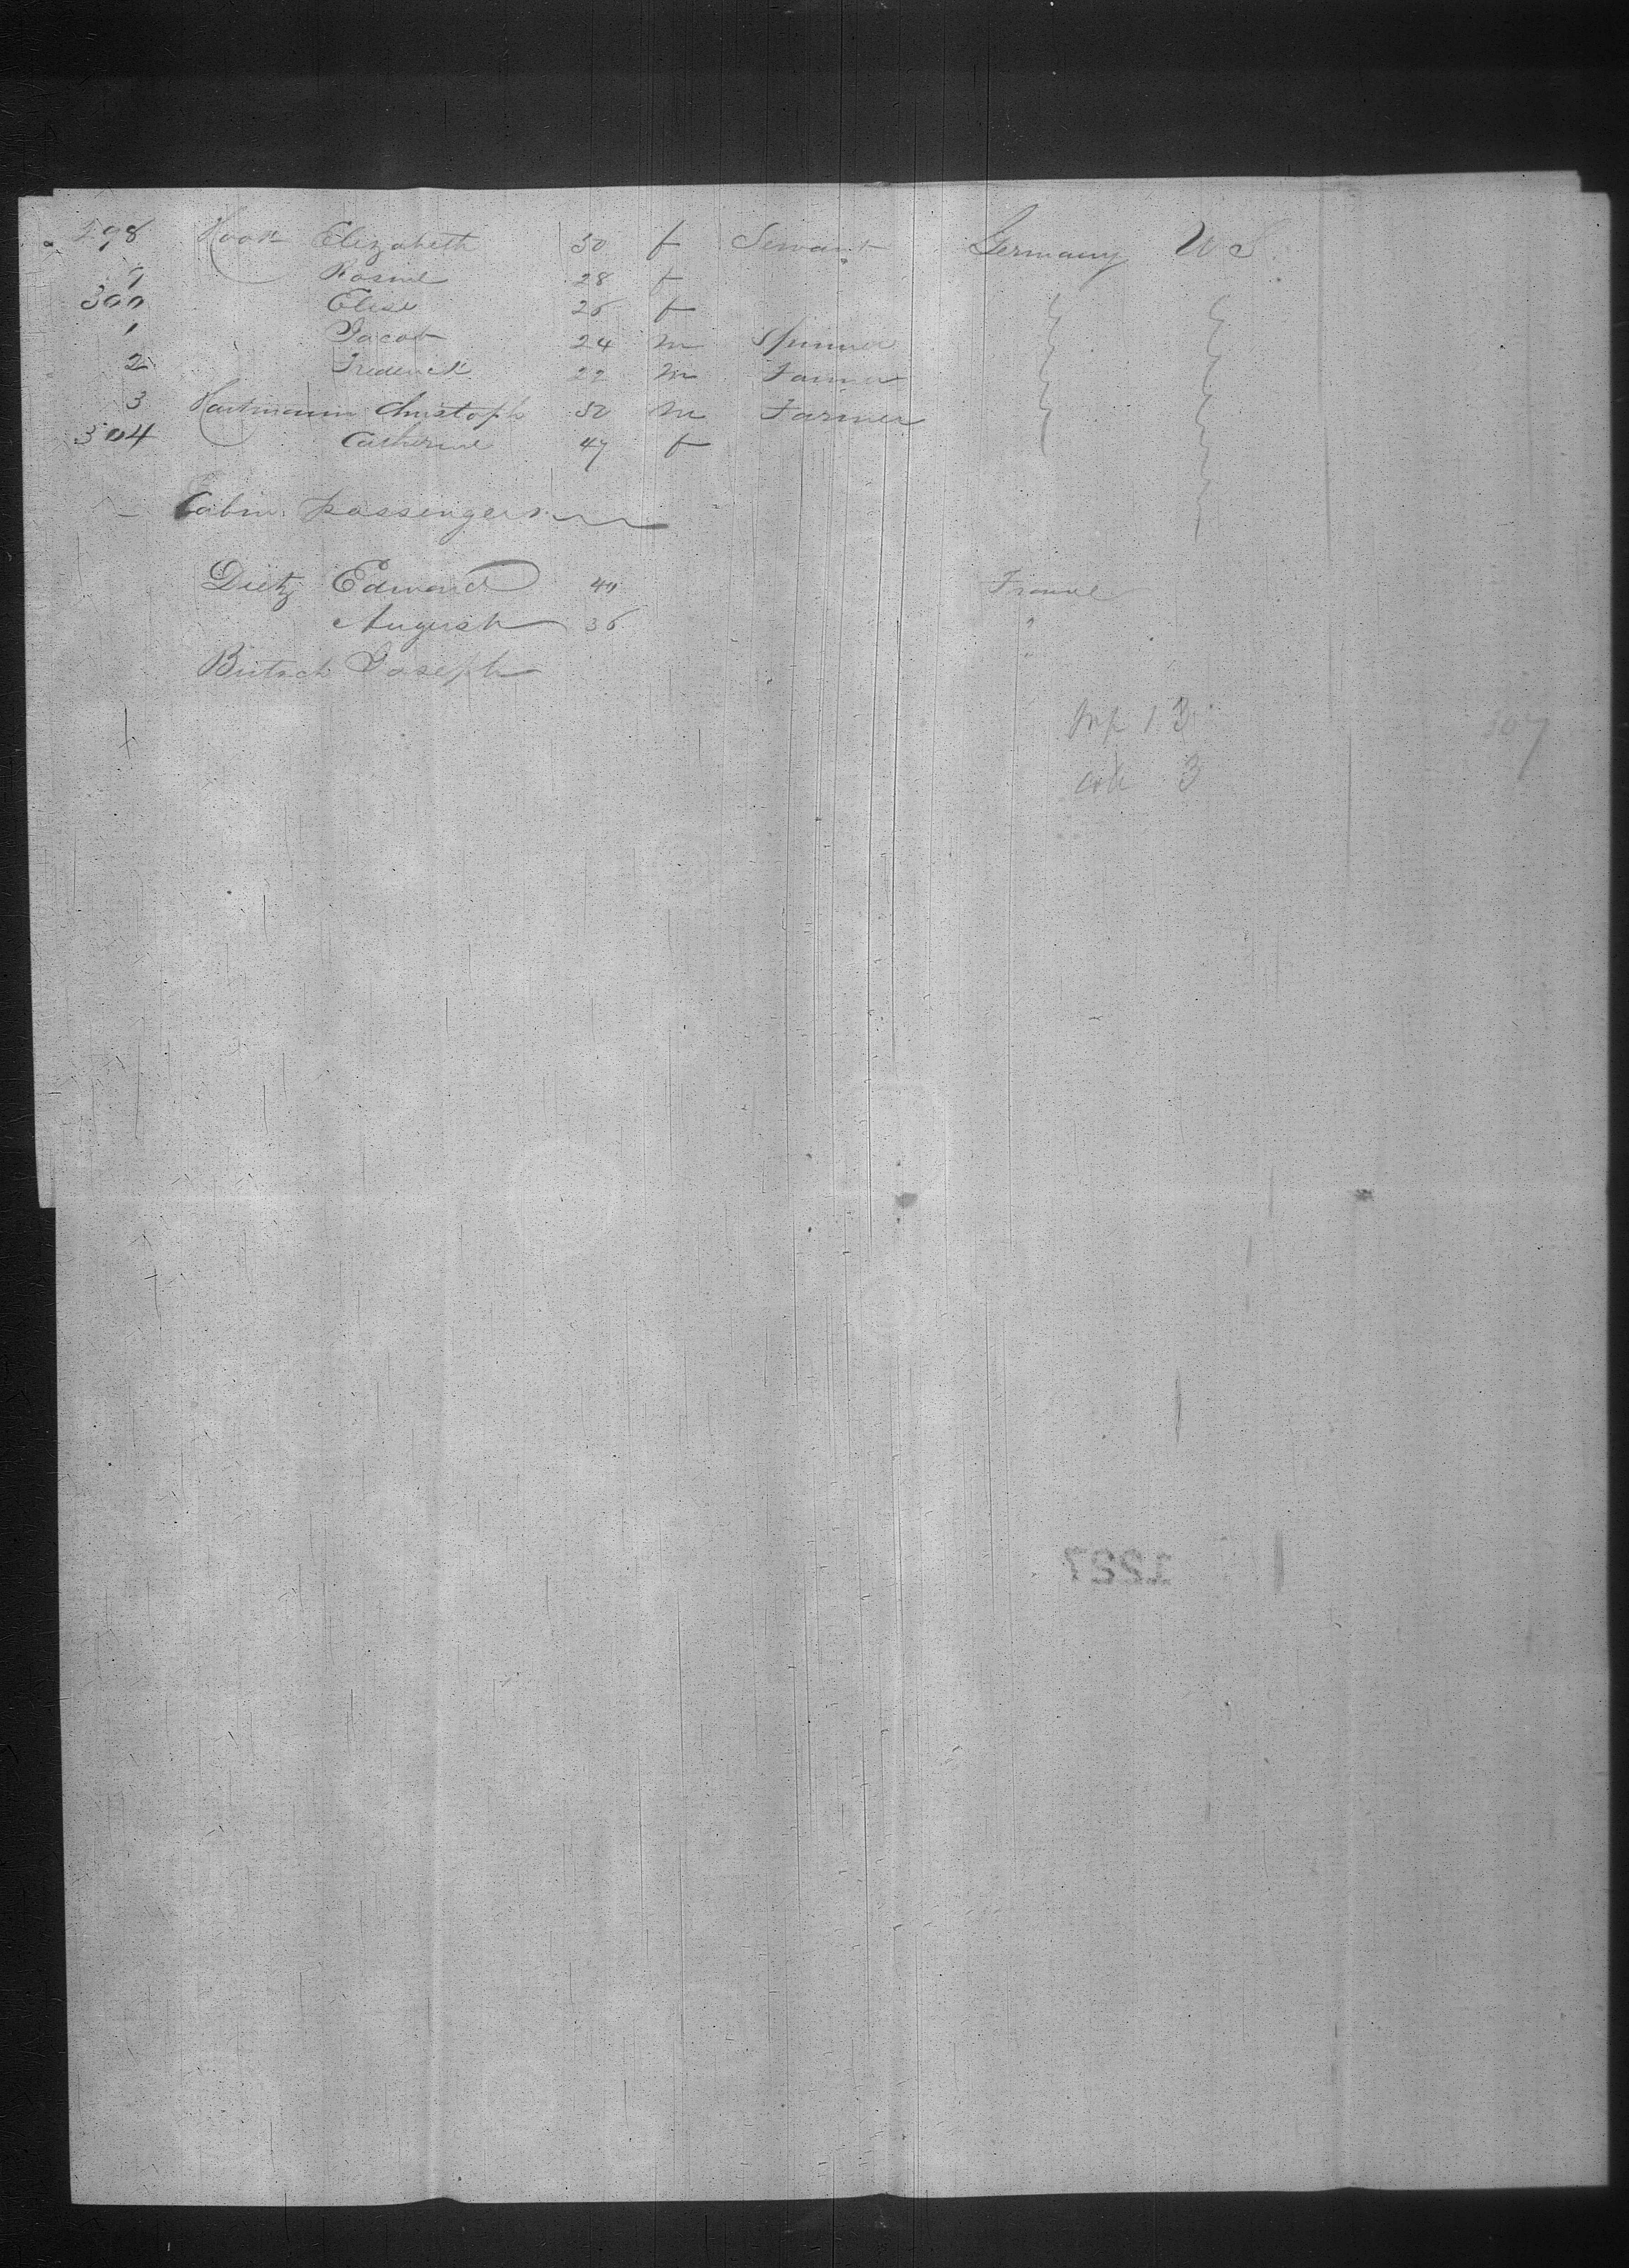 298 Hook Elizabeth 30 f Servant Germany U S
9 Rosine 28 f
300 Elise 26 f
1 Jacob 24 m Spinner
2 Frederick 22 m Farmer
3 Hartmann Christoph 50 m Farmer
304 Catherine 47 f
Cabin passengers
Dietz Edward 40 France
August 36 "
Bütsch Joseph "
13
3
307
1227